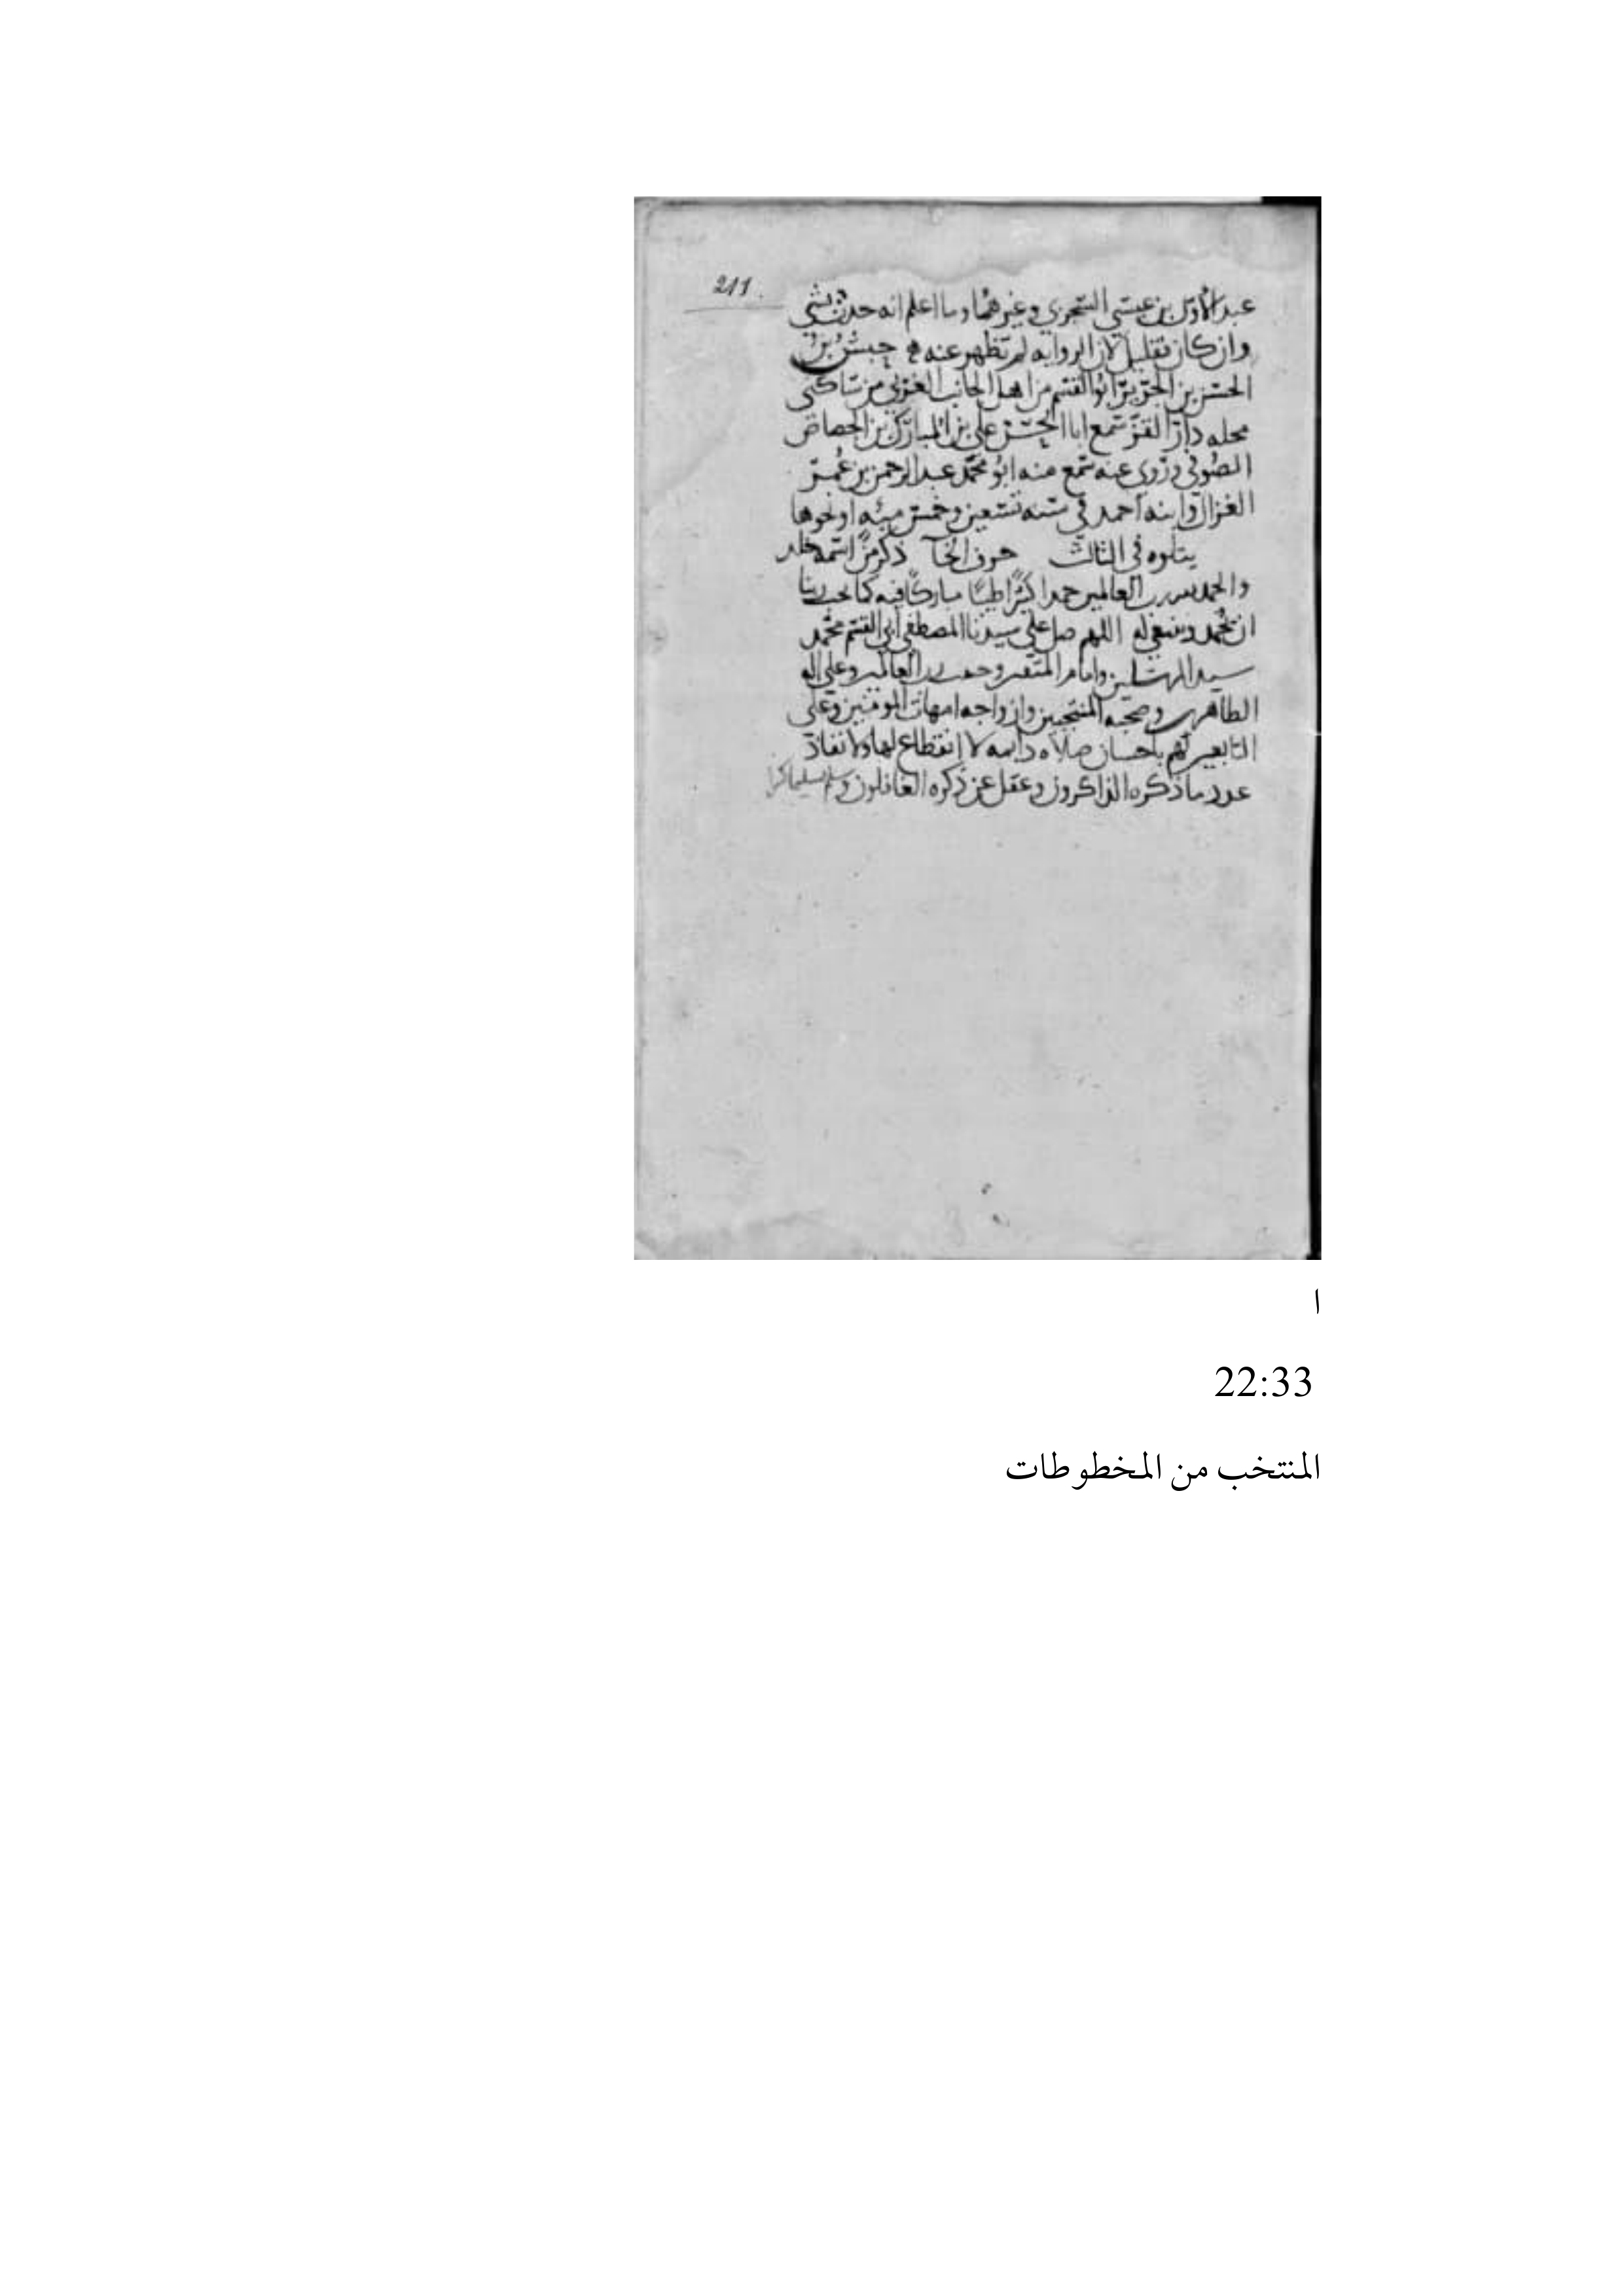 211.
عبد الاول بن عيسي السجزي وغيرهما وما اعلم انه حدث بشي
وان كان فقليل لان الروايه لم تظهر عنه حبش بن
الحسن بن ابوالقسم من اهل الجانب الغربي من ساكني
محله دار القز سمع ابا الحسن علي بن المبارك بن الجصاص
الصوفي وروي عنه سمع منه ابو محمد عبد الرحمن بن عمر
الغزال وابنه احمد في سنه تسعين وخمس ميئه او نحوها
يتلوه في الثالث حرف الخآ ذكر من اسمه خلد
والحمد لله رب العالمين حمدا كثيرا طيبا مباركا فيه كما يحب ربنا
ان يحمد وينبغي له اللهم صل علي سيدنا المصطفي ابي القسم محمد
سيد المرسلين وامام المتقين رب العالمين وعلي اله
الطاهرين وصحبه المنتجبين وازواجه امهات المومنين وعلي
التابعين لهم باحسان صلاه دايمه لا انقطاع لها ولا نفاد
عدد ما ذكره الذاكرون وغفل عن ذكره الغافلون وسلم تسليما كثيرا
ا
22:33
المنتخب من المخطوطات